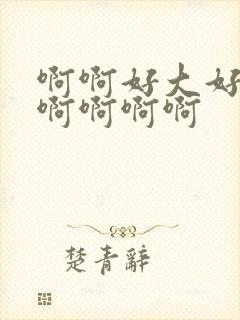 啊啊好大好
啊啊啊啊
楚青辭